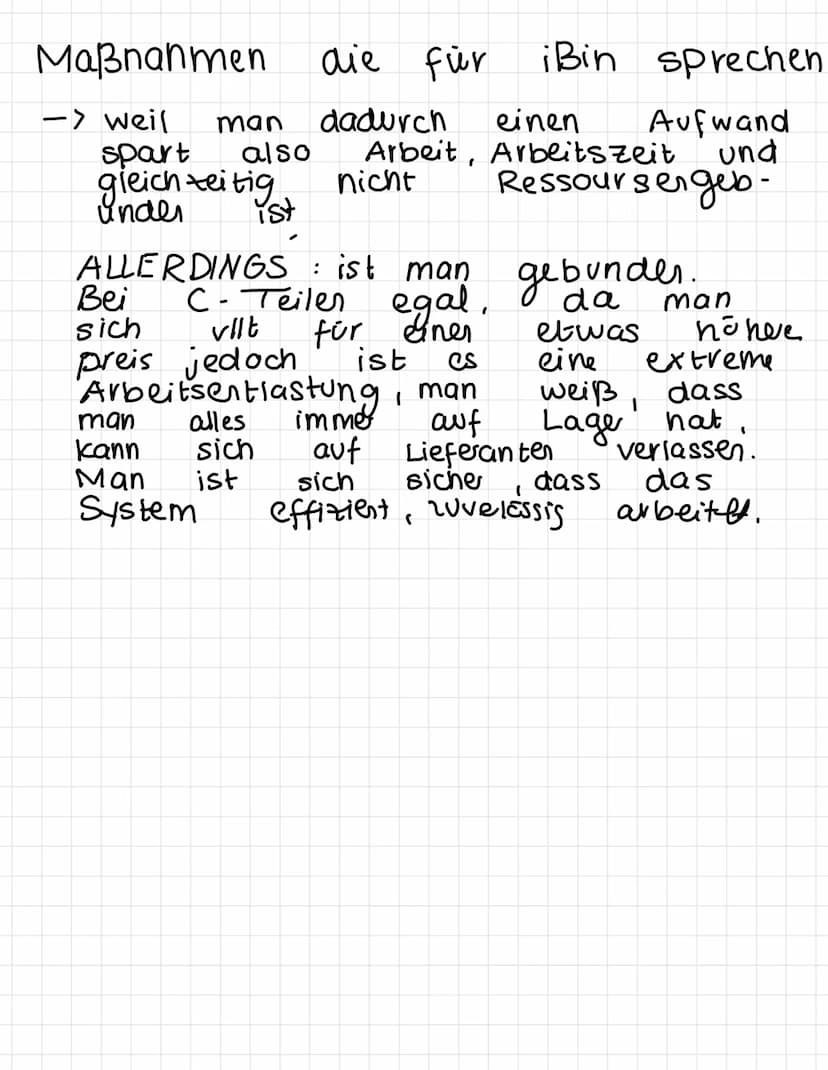 Maßnahmen die für iBin sprechen
-> weil man dadurch einen Aufwand
spart also Arbeit, Arbeitszeit und
gleichzeitig nicht Ressoursengeb-
unden ist
ALLERDINGS : ist man gebunden.
Bei C-Teilen egal, da man
sich vllt für einen etwas höhere
preis jedoch ist es eine extreme
Arbeitsentlastung, man weiß, dass
man alles immer auf Lager hat,
kann sich auf Lieferanten verlassen.
Man ist sich sicher, dass das
System effizient, zuverlässig arbeitet.